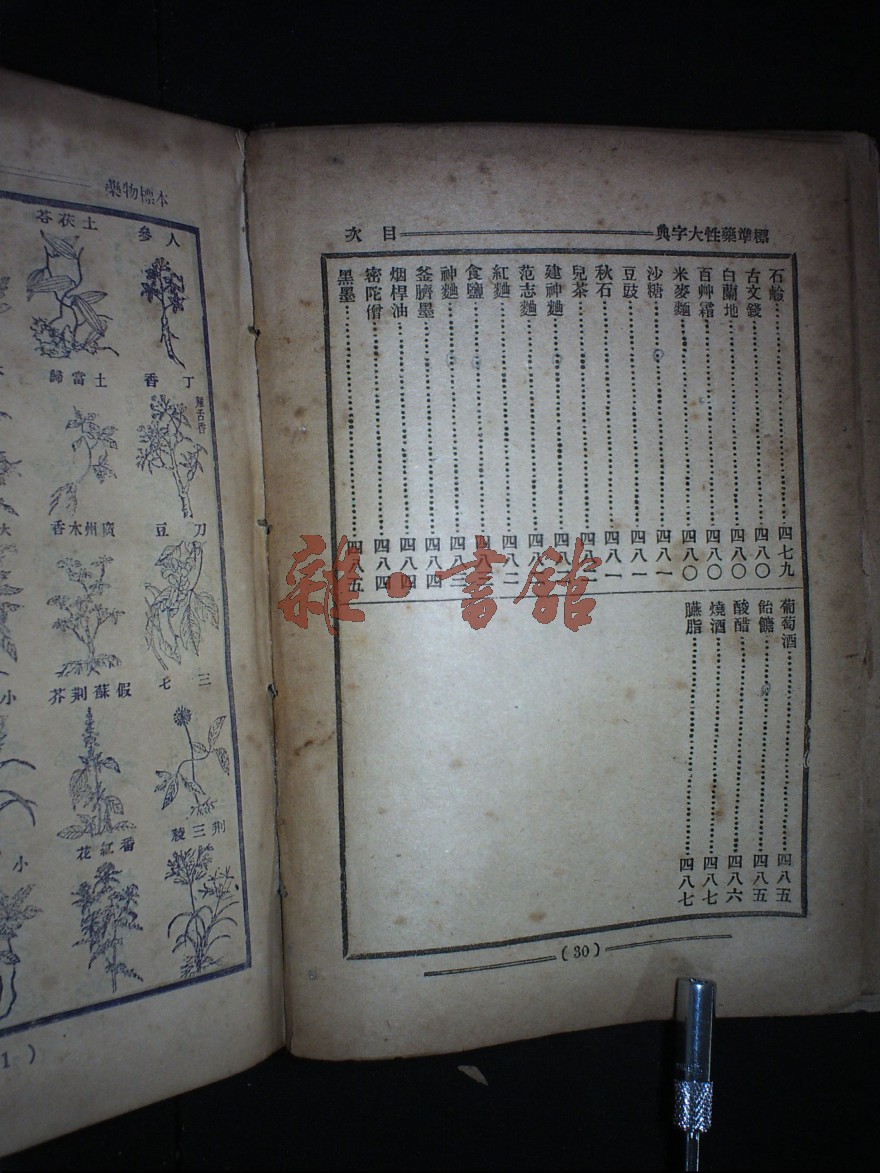 標準藥性大字典
目次
石鹼 四七九
古文錢 四八〇
白蘭地 四八〇
百艸霜 四八〇
米麥麵 四八〇
沙糖 四八一
豆豉 四八一
秋石 四八一
兒茶
建神麯
范志麯
紅麯 四八二
食鹽
神麯
釜臍墨 四八四
烟桿油 四八四
密陀僧 四八四
黑墨 四八五
葡萄酒 四八五
飴餹 四八五
酸醋 四八六
燒酒 四八七
臙脂 四八七
(30)
藥物標本
人參
土茯苓
丁香
雞舌香
土當歸
刀豆
廣州木香
三七
假蘇荊芥
荊三稜
番紅花
小
小
1)
雜·書館